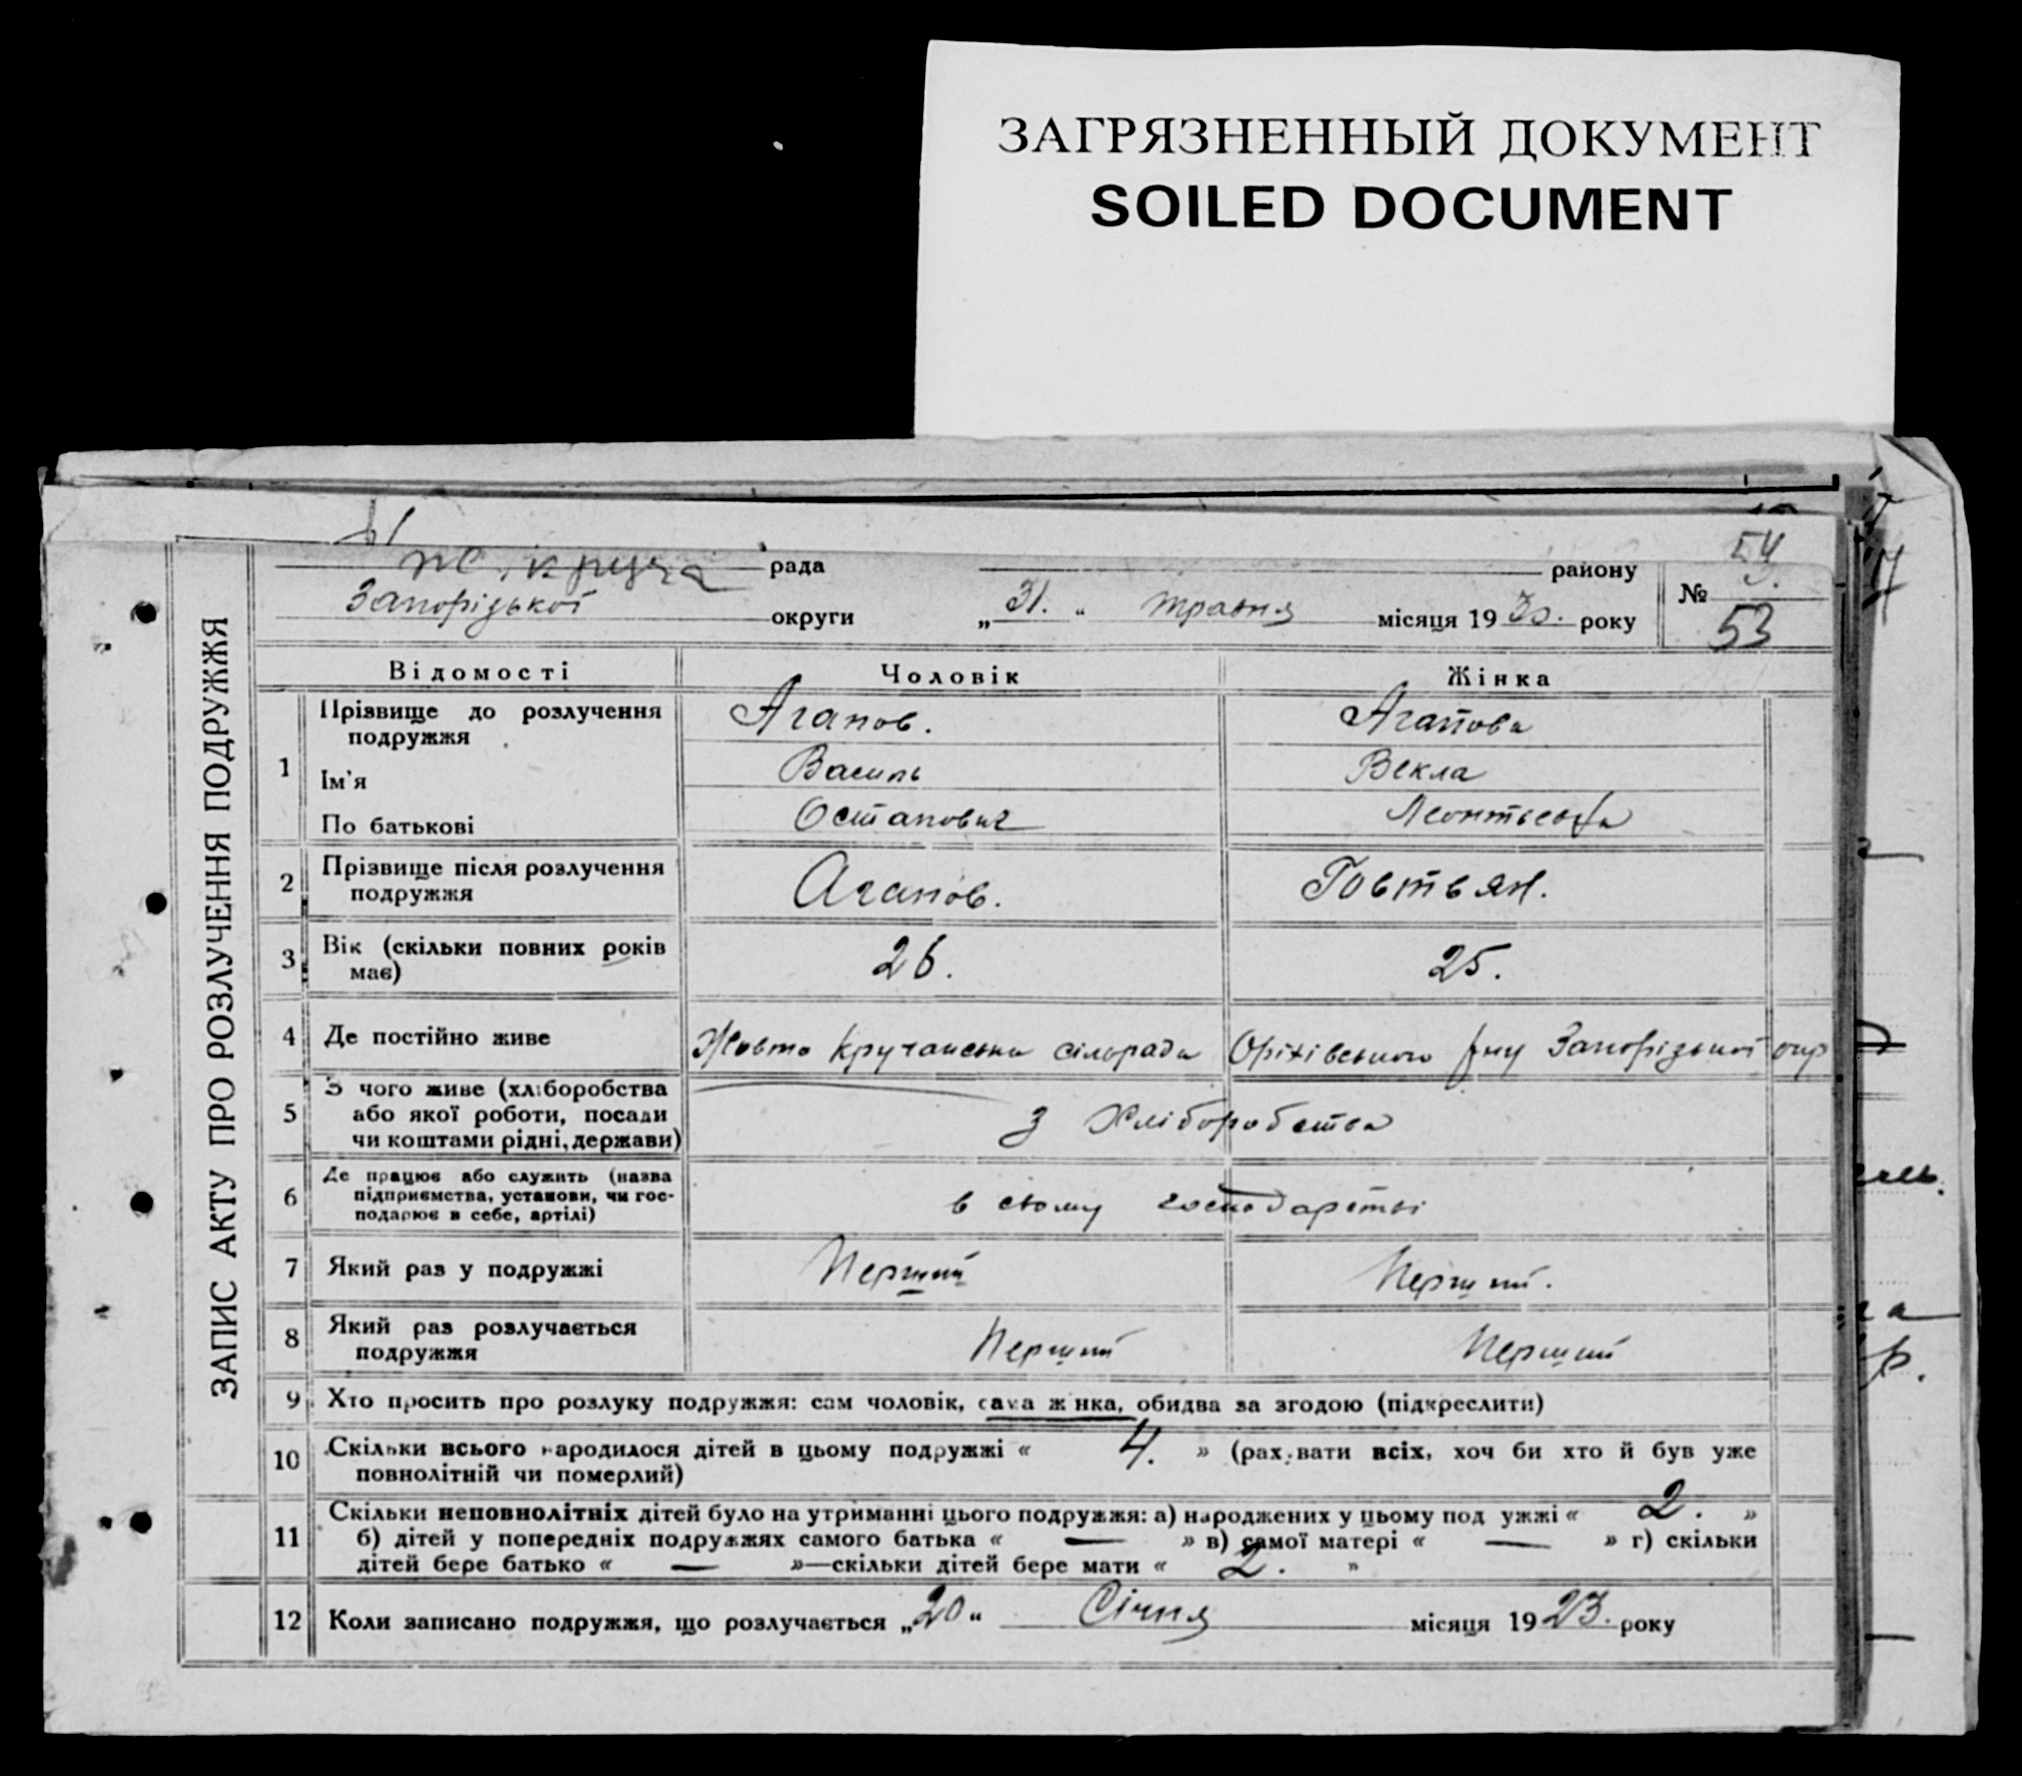 ЗАГРЯЗНЕННЫЙ ДОКУМЕНТ
SOILED DOCUMENT
ЗАПИС АКТУ ПРО РОЗЛУЧЕННЯ ПОДРУЖЖЯ
рада району
54
Запорізької округи „31.“ травня місяця 1930. року
№ 53
Відомості Чоловік Жінка
1 Прізвище до розлучення подружжя Агапов. Агапова
Ім'я Василь Векла
По батькові Остапович Леонтьевна
2 Прізвище після розлучення подружжя Агапов. Говтвян.
3 Вік (скільки повних років має) 26. 25.
4 Де постійно живе Жовто Кручанська сільрада Оріхівського р-ну Запорізької окр
5 З чого живе (хліборобства
або якої роботи, посади
чи коштами рідні, держави) з Хліборобства
6 Де працює або служить (назва
підприємства, установи, чи гос-
подарює в себе, артілі) в свому господарстві
7 Який раз у подружжі Перший Перший.
8 Який раз розлучається подружжя Перший Перший
9 Хто просить про розлуку подружжя: сам чоловік, сама жінка, обидва за згодою (підкреслити)
10 Скільки всього народилося дітей в цьому подружжі « 4. » (рахувати всіх, хоч би хто й був уже
повнолітній чи померлий)
11 Скільки неповнолітніх дітей було на утриманні цього подружжя: а) народжених у цьому подружжі « 2. »
б) дітей у попередніх подружжях самого батька « — » в) самої матері « — » г) скільки
дітей бере батько « — »—скільки дітей бере мати « 2. »
12 Коли записано подружжя, що розлучається „20“ Січня місяця 1923. року